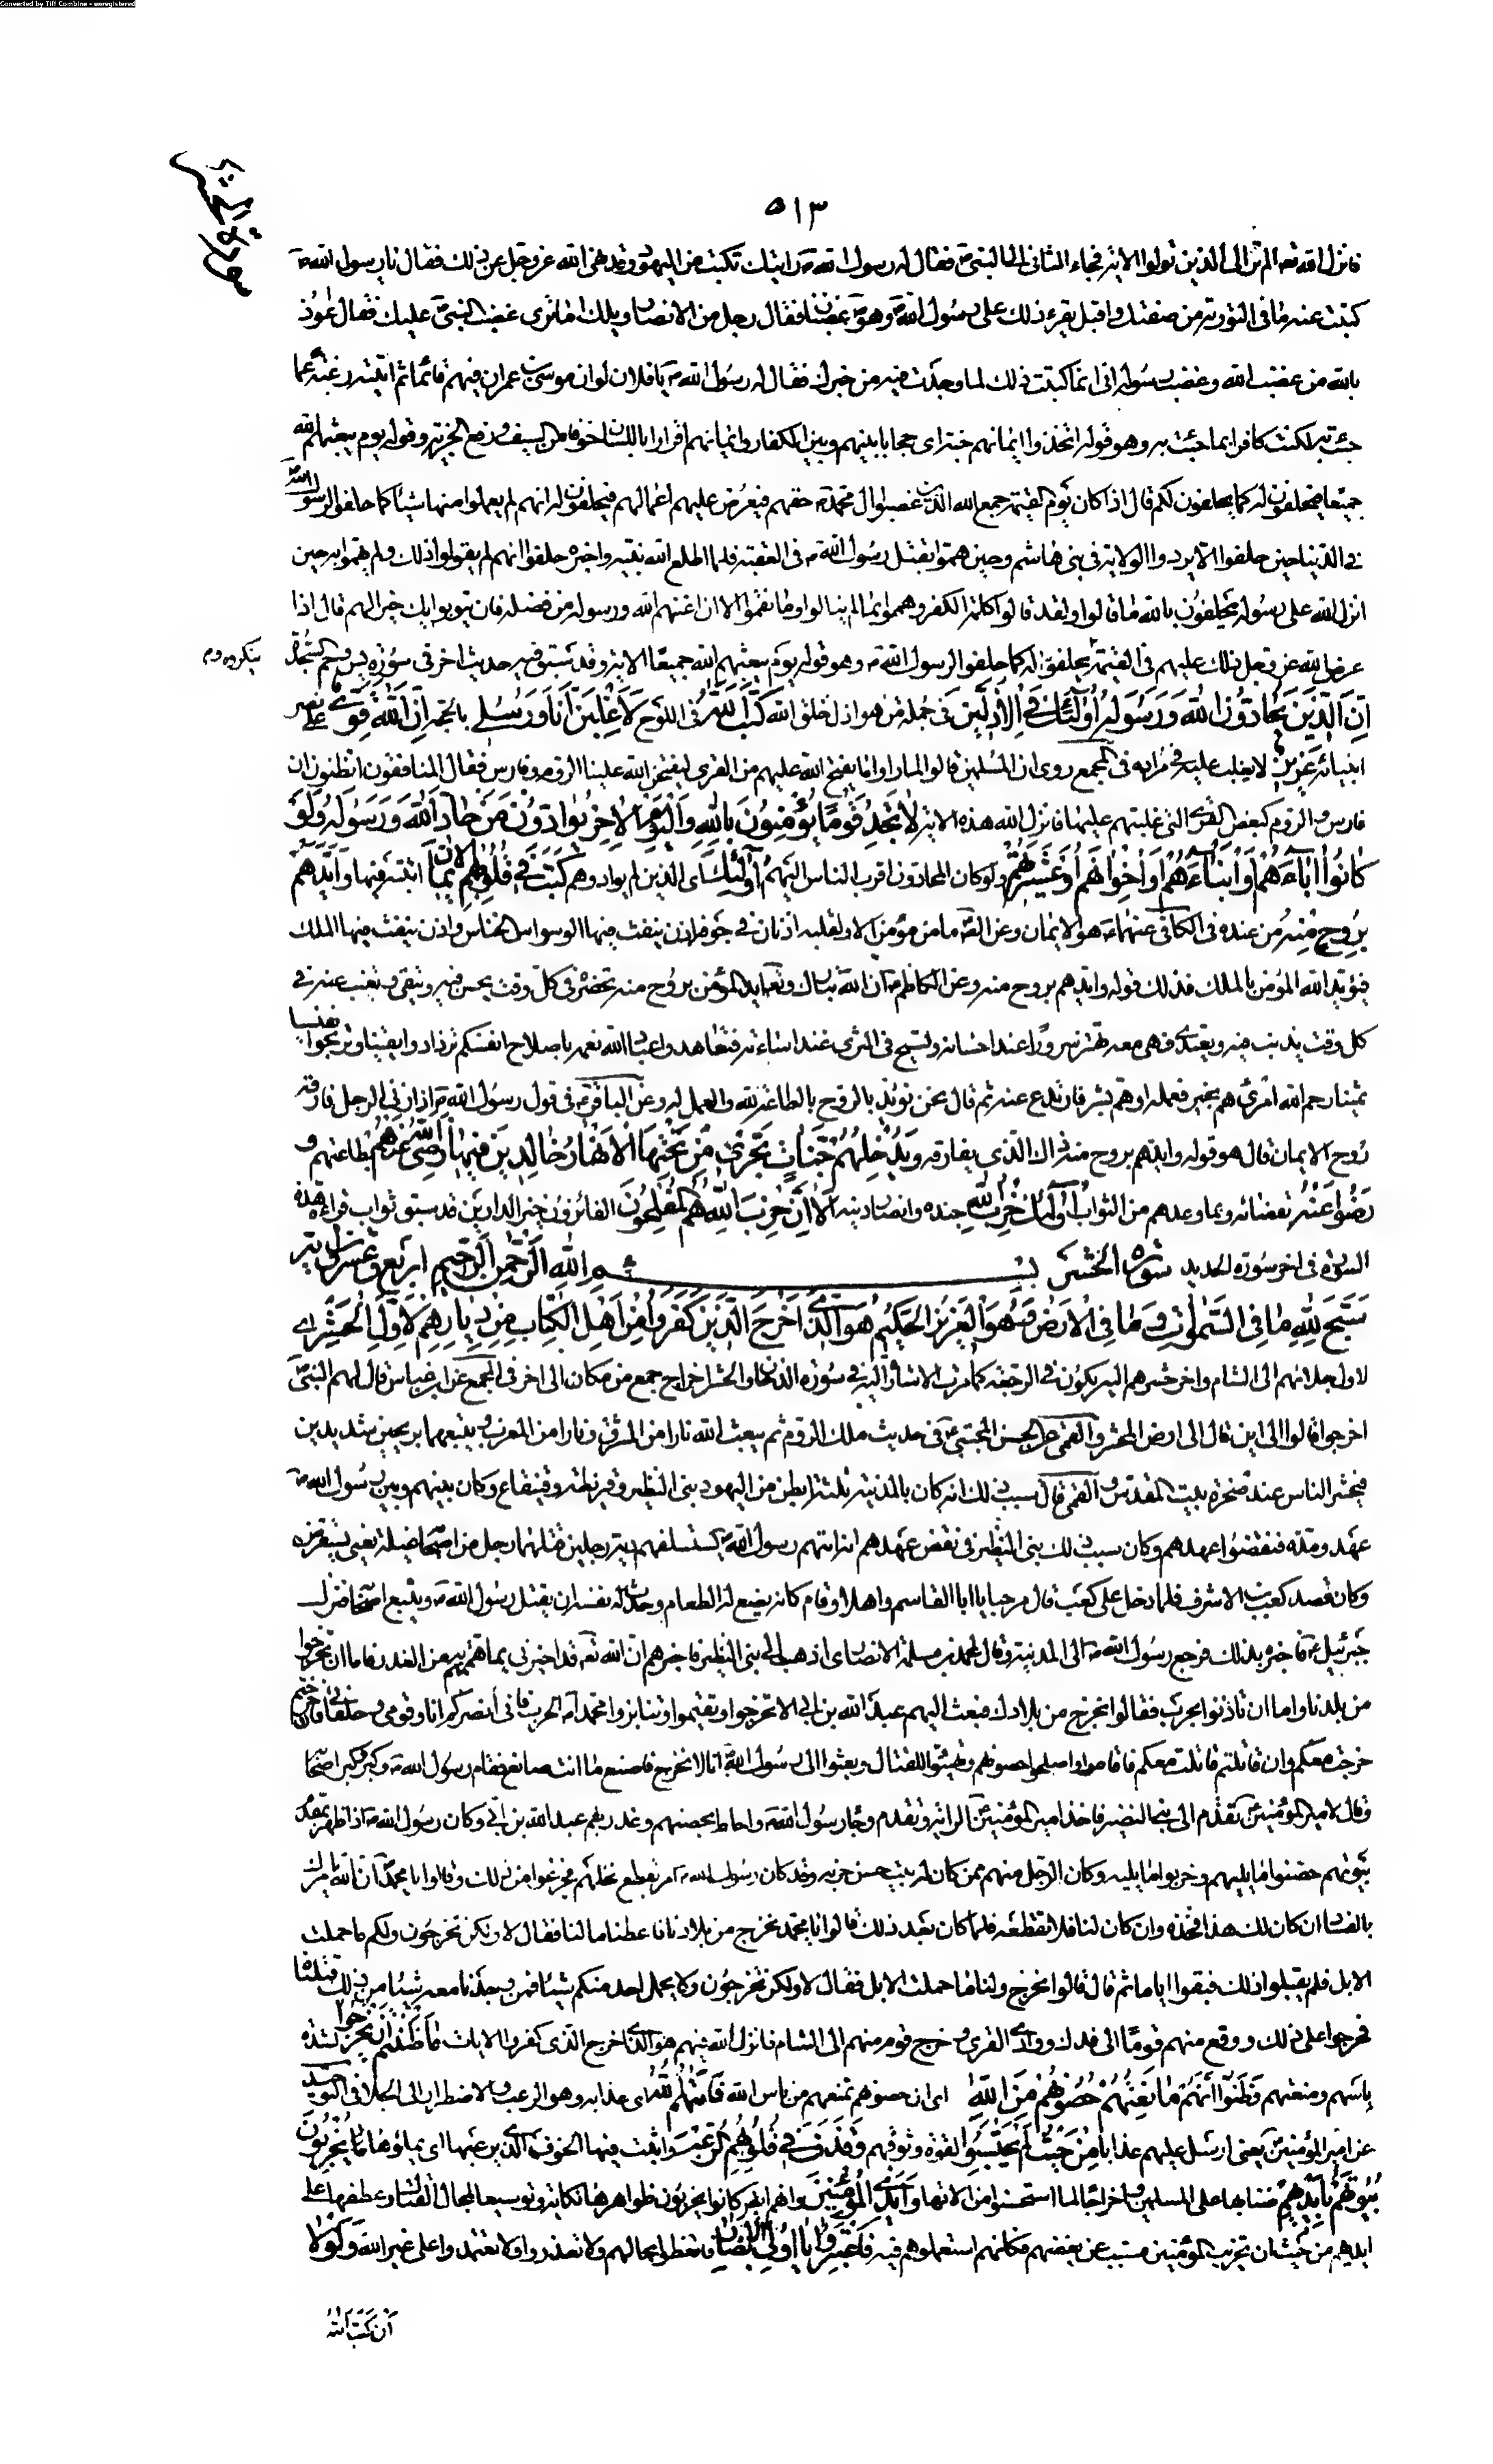 Converted by Tiff Combine - unregistered
سورة الحشر
٥١٣
فانزل الله تعه الم تر الى الذين تولوا الاية فجاء الثانى الى النبى ص فقال له رسول الله ص رايتك تكتب من اليهود وقد نهى الله عز وجل عن ذلك فقال يا رسول الله ص
كتبت عنه ما فى التورية من صفتك واقبل يقرء ذلك على رسول الله ص وهو غضبان فقال رجل من الانصار ويلك اما ترى غضب النبى ص عليك فقال اعوذ
بالله من غضب الله وغضب رسوله انى انما كتبت ذلك لما وجدت فيه من خبرك فقال له رسول الله ص يا فلان لو ان موسى بن عمران فيهم قائما ثم اتيته رغبة عما
جئت به لكنت كافرا بما جئت به وهو قوله اتخذوا ايمانهم جنة اى حجابا بينهم وبين الكفار وايمانهم اقرارا باللسان خوفا من السيف ورفع الجزية وقوله يوم يبعثهم الله
جميعا فيحلفون له كما يحلفون لكم قال اذا كان يوم القيمة جمع الله الذين غصبوا ال محمد ص حقهم فيعرض عليهم اعمالهم فيحلفون له انهم لم يعملوا منها شيئا كما حلفوا لرسول الله ص
فى الدنيا حين حلفوا الا يردوا الولاية فى بنى هاشم وحين هموا بقتل رسول الله ص فى العقبة فلما اطلع الله نبيه واخبره حلفوا انهم لم يقولوا ذلك ولم يهموا به حين
انزل الله على رسوله يحلفون بالله ما قالوا ولقد قالوا كلمة الكفر وهموا بما لم ينالوا وما نقموا الا ان اغنيهم الله ورسوله من فضله فان يتوبوا يك خيرا لهم قال اذا
عرض الله عز وجل ذلك عليهم فى القيمة يحلفون له كما حلفوا لرسول الله ص وهو قوله يوم يبعثهم الله جميعا الاية وقد سبق فيه حديث اخر فى سورة يس وحم السجدة
ان الذين يحادون الله ورسوله اولئك فى الاذلين فى جملة من هو اذل خلق الله كتب الله فى اللوح لاغلبن انا ورسلى بالحجة ان الله قوى على نصر
انبيائه عزيز لا يغلب عليه فى مراده فى المجمع روى ان المسلمين قالوا لما راوا ما يفتح الله عليهم من القرى ليفتحن الله علينا الروم وفارس فقال المنافقون اتظنون ان
فارس والروم كبعض القرى التى غلبتم عليها فانزل الله هذه الاية لا تجد قوما يؤمنون بالله واليوم الاخر يوادون من حاد الله ورسوله ولو
كانوا اباءهم او ابناءهم او اخوانهم او عشيرتهم ولو كان المحادون اقرب الناس اليهم اولئك اى الذين لم يوادوهم كتب فى قلوبهم الايمان اثبته فيها وايدهم
بروح منه من عنده فى الكافى عنهما ع هو الايمان وعن الصادق ع ما من مؤمن الا ولقلبه اذنان فى جوفه اذن ينفث فيها الوسواس الخناس واذن ينفث فيها الملك
فيؤيد الله المؤمن بالملك فذلك قوله وايدهم بروح منه وعن الكاظم ع ان الله تبارك وتعالى ايد المؤمن بروح منه تحضره فى كل وقت يحسن فيه ويتقى وتغيب عنه فى
كل وقت يذنب فيه ويعتدى فهى معه تهتز سرورا عند احسانه وتسيخ فى الثرى عند اساءته فتعاهدوا عباد الله نعمه باصلاح انفسكم تزدادوا يقينا وتربحوا نفيسا
ثمينا رحم الله امرئ هم بخير فعمله او هم بشر فارتدع عنه ثم قال نحن نؤيد بالروح بالطاعة لله والعمل له وعن الباقر ع فى قول رسول الله ص اذا زنى الرجل فارقه
روح الايمان قال هو قوله وايدهم بروح منه ذاك الذى يفارقه ويدخلهم جنات تجرى من تحتها الانهار خالدين فيها رضى الله عنهم بطاعتهم و
رضوا عنه بقضائه وبما وعدهم من الثواب اولئك حزب الله جنده وانصار دينه الا ان حزب الله هم المفلحون الفائزون بخير الدارين قد سبق ثواب قراءة هذه
السورة فى اخر سورة الحديد سورة الحشر بسم الله الرحمن الرحيم اربع وعشرون اية
سبح لله ما فى السموات وما فى الارض وهو العزيز الحكيم هو الذى اخرج الذين كفروا من اهل الكتاب من ديارهم لاول الحشر اى
لاول جلائهم الى الشام واخر حشرهم اليه يكون فى الرجعة كما مرت الاشارة اليه فى سورة الدخان والحشر اخراج جمع من مكان الى اخر فى المجمع عن ابن عباس قال لهم النبى ص
اخرجوا قالوا الى اين قال الى ارض المحشر والقمى عن الحسن المجتبى ع فى حديث ملك الروم ثم يبعث الله نارا من المشرق ونارا من المغرب ويتبعهما بريحين شديدين
فيحشر الناس عند صخرة بيت المقدس والقمى قال سبب ذلك انه كان بالمدينة ثلثة ابطن من اليهود بنى النظير وقريظة وقينقاع وكان بينهم وبين رسول الله ص
عهد ومدة فنقضوا عهدهم وكان سبب ذلك بنى النظير فى نقض عهدهم انه اتيهم رسول الله ص يستسلفهم دية رجلين قتلهما رجل من اصحابه غيلة يعنى يستقرض
وكان قصد كعب بن الاشرف فلما دخل على كعب قال مرحبا يا ابا القاسم واهلا وقام كانه يضع له الطعام وحدث نفسه ان يقتل رسول الله ص ويتبع اصحابه فنزل
جبرئيل ع فاخبره بذلك فرجع رسول الله ص الى المدينة وقال لمحمد بن مسلمة الانصارى اذهب الى بنى النظير فاخبرهم ان الله تعه قد اخبرنى بما هممتم به من الغدر فاما ان تخرجوا
من بلدنا واما ان تاذنوا بحرب فقالوا نخرج من بلادك فبعث اليهم عبد الله بن ابى الا تخرجوا وتقيموا وتنابزوا محمدا الحرب فانى انصركم انا وقومى وحلفائى فان خرجتم
خرجت معكم وان قاتلتم قاتلت معكم فاقاموا واصلحوا حصونهم وتهيئوا للقتال وبعثوا الى رسول الله ص انا لا نخرج فاصنع ما انت صانع فقام رسول الله ص وكبر وكبر اصحابه
وقال لامير المؤمنين ع تقدم الى بنى النضير فاخذ امير المؤمنين ع الراية وتقدم وجاء رسول الله ص واحاط بحصنهم وغدر بهم عبد الله بن ابى وكان رسول الله ص اذا ظهر بمقدم
بيوتهم حصنوا ما يليهم وخربوا ما يليه وكان الرجل منهم ممن كان له بيت حسن خربه وقد كان رسول الله ص امر بقطع نخلهم فجزعوا من ذلك وقالوا يا محمد ان الله يامرك
بالفساد ان كان لك هذا فخذه وان كان لنا فلا تقطعه فلما كان بعد ذلك قالوا يا محمد نخرج من بلادنا فاعطنا مالنا فقال لا ولكن تخرجون ولكم ما حملت
الابل فلم يقبلوا ذلك فبقوا اياما ثم قال قالوا نخرج ولنا ما حملت الابل فقال لا ولكن تخرجون ولا يحمل احد منكم شيئا فمن وجدنا معه شيئا من ذلك قتلناه
فخرجوا على ذلك ووقع منهم قوما الى فدك ووادى القرى وخرج قوم منهم الى الشام فانزل الله فيهم هو الذى اخرج الذين كفروا الايات ما ظننتم ان يخرجوا لشدة
باسهم ومنعتهم وظنوا انهم مانعتهم حصونهم من الله اى ان حصونهم تمنعهم من باس الله فاتيهم الله اى عذابه وهو الرعب والاضطرار الى الجلاء فى التوحيد
عن امير المؤمنين ع يعنى ارسل عليهم عذابا من حيث لم يحتسبوا لقوة وثوقهم وقذف فى قلوبهم الرعب واثبت فيها الخوف الذى يرعبها اى يملؤها يخربون
بيوتهم بايديهم ضنا بها على المسلمين واخراجا لما استحسنوا من الاتها وايدى المؤمنين فانهم ايضا كانوا يخربون ظواهرها نكاية وتوسيعا لمجال القتال وعطفها على
ايديهم من حيث ان تخريب المؤمنين مسبب عن بغضهم فكانهم استعملوهم فيه فاعتبروا يا اولى الابصار فاتعظوا بحالهم ولا تغدروا ولا تعتمدوا على غير الله ولولا
ان كتب الله